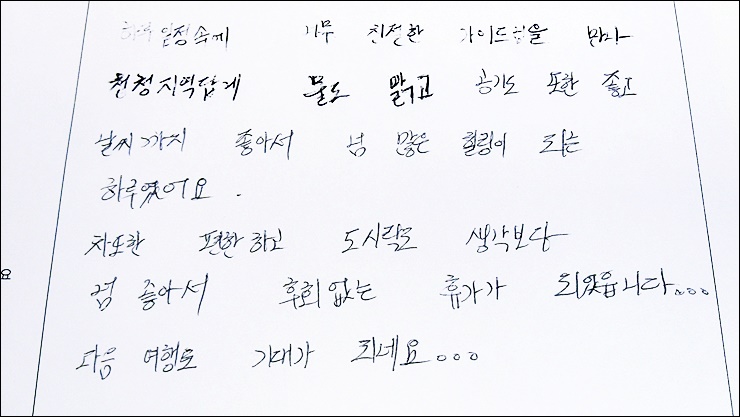 일정속에 너무 친절한 가이드님을 만나
천청지역답게 물도 맑고 공기도 또한 좋고
날씨까지 좋아서 넘 많은 힐링이 되는
하루였어요.
차또한 편한하고 도시락도 생각보다
넘 좋아서 후회없는 휴가가 되었읍니다...
다음 여행도 기대가 되네요...